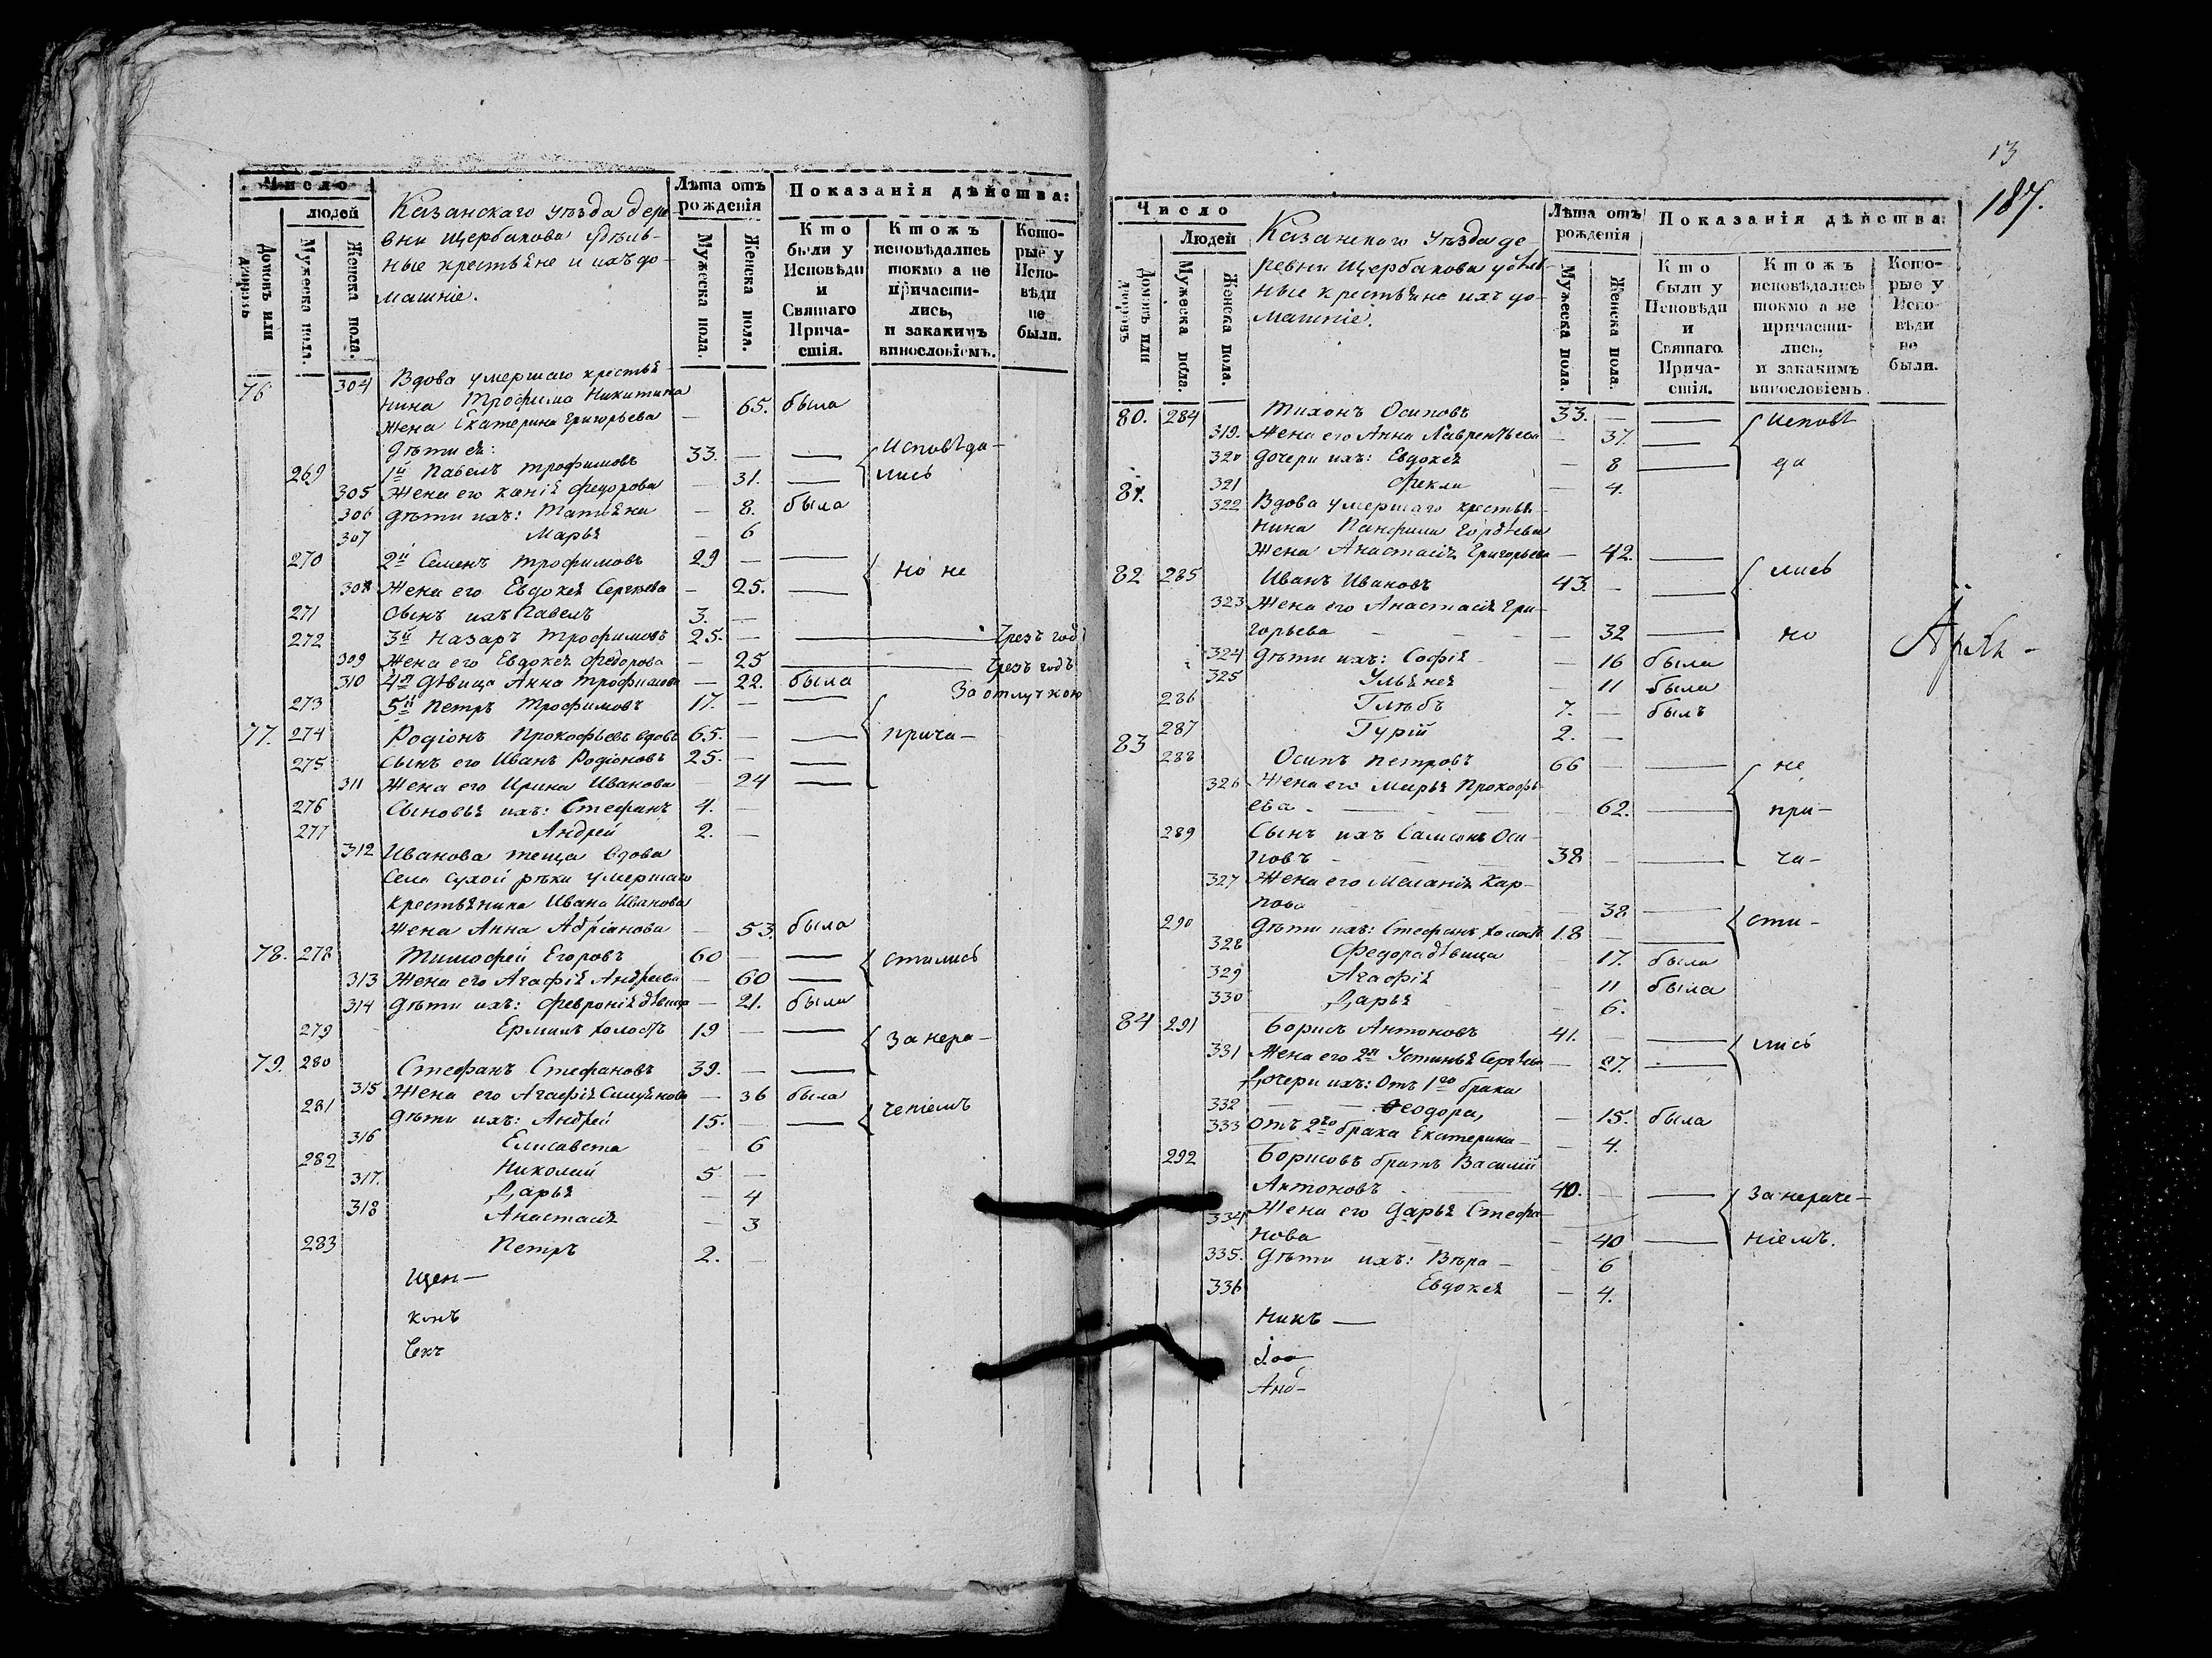 Число
людей
Домовъ или дворовъ
Мужеска пола.
Женска пола.
Казанскаго уѣзда дере
вни Щербакова удѣль-
ные крестьяне и ихъ до-
машніе.
Лѣта отъ рожденія
Мужеска пола.
Женска пола.
Показанія дѣйства:
Кто были у Исповѣди и Святаго Прича-стія.
Ктожъ исповѣдались токмо а не причасти-лись, и закакимъ винословіемъ.
Кото-рые у Испо-вѣди не были.
76 304 Вдова умершаго крестья-
нина Трофима Никитина
жена Екатерина Григорьева — 65. была
Дѣти ея:
269 1й Павелъ Трофимовъ 33. — — Исповѣда-
305 Жена его Ксенія Федорова — 31. — лись
306 Дѣти ихъ: Татіяна — 8. была
307 Марья — 6
270 2й Семенъ Трофимовъ 29 — —
308 Жена его Евдокея Сергѣева — 25. — но не
271 Сынъ ихъ Павелъ 3. —
272 3й Назаръ Трофимовъ 25. — — Чрезъ годъ
309 Жена его Евдокея Федорова — 25 — Чрезъ годъ
310 4я Дѣвица Анна Трофимова — 22. была За отлучкою
273 5й Петръ Трофимовъ 17. — —
77. 274 Родіонъ Прокофьевъ вдовъ 65. — — прича-
275 Сынъ его Иванъ Родіоновъ 25. — —
311 Жена его Ирина Иванова — 24 —
276 Сыновья ихъ: Стефанъ 4. —
277 Андрей 2. —
312 Иванова теща вдова
села Сухой рѣки умершаго
крестьянина Ивана Иванова
жена Анна Адріанова — 53. была
78. 278 Тимофей Егоровъ 60 — — стились
313 Жена его Агафія Андреева — 60 —
314 Дѣти ихъ: Февронія дѣвица — 21. была
279 Ермилъ холостъ 19 — — За нера-
79. 280 Стефанъ Стефановъ 39. — —
315 Жена его Агафія — 36 была
281 Дѣти ихъ: Андрей 15. — — ченіемъ
316 Елисавета — 6
282 Николай 5 —
317. Дарья — 4
318 Анастасія — 3
283 Петръ 2. —
щен—
13
187.
Число
Людей
Домовъ или дворовъ
Мужеска пола.
Женска пола.
Казанскаго уѣзда де-
ревни Щербакова удѣль-
ные крестьяне ихъ до-
машніе.
Лѣта отъ рожденія
Мужеска пола.
Женска пола.
Показанія дѣйства
Кто были у Исповѣди и Святаго Прича-стія.
Ктожъ исповѣдались токмо а не причасти-лись, и закакимъ винословіемъ.
Кото-рые у Испо-вѣди не были.
80. 284 Тихонъ Осиповъ 33. — — Исповѣ
319. Жена его Анна Лаврентьева — 37. —
320 Дочери ихъ: Евдокея — 8 — да
321 Фекла — 4.
81. 322 Вдова умершаго крестья-
нина Панфила Гордѣева
жена Анастасія Григорьева — 42. —
82 285 Иванъ Ивановъ 43. — — лись
323 Жена его Анастасія Гри-
горьева — 32 — но
324 Дѣти ихъ: Софія — 16 была
325 Ульянея — 11 была
286 Глѣбъ 7. — былъ
287 Гурій 2. —
83 288 Осипъ Петровъ 66 — — не
326 Жена его Марья Прокофь-
ева — 62. — при-
289 Сынъ ихъ Самсонъ Оси-
повъ 38 — — ча-
327 Жена его Меланія Кар-
пова — 38 —
290 Дѣти ихъ: Стефанъ холостъ 18 — — сти-
328 Федора дѣвица — 17. была
329 Агафія — 11 была
330 Дарья — 6.
84 291 Борисъ Антоновъ 41. — —
331 Жена его 2я Устинья Сергѣева — 27. — лись
Дочери ихъ: Отъ 1го брака
332 Ѳеодора, — 15. была
333 Отъ 2го брака Екатерина — 4.
292 Борисовъ братъ Василій
Антоновъ 40. — — За нераче-
334 Жена его Дарья Стефа-
нова — 40 — ніемъ.
335. Дѣти ихъ: Вѣра — 6
336 Евдокея — 4.
никъ —